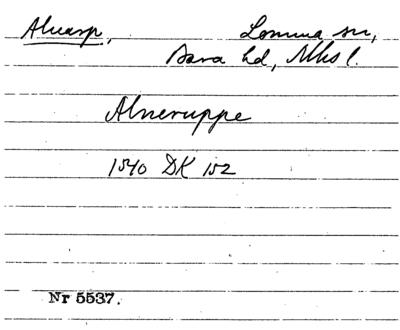 Alnarp, Lomma sn,
Bara hd, Mhs l.
Alneruppe
1540 DK 152
Nr 5537.